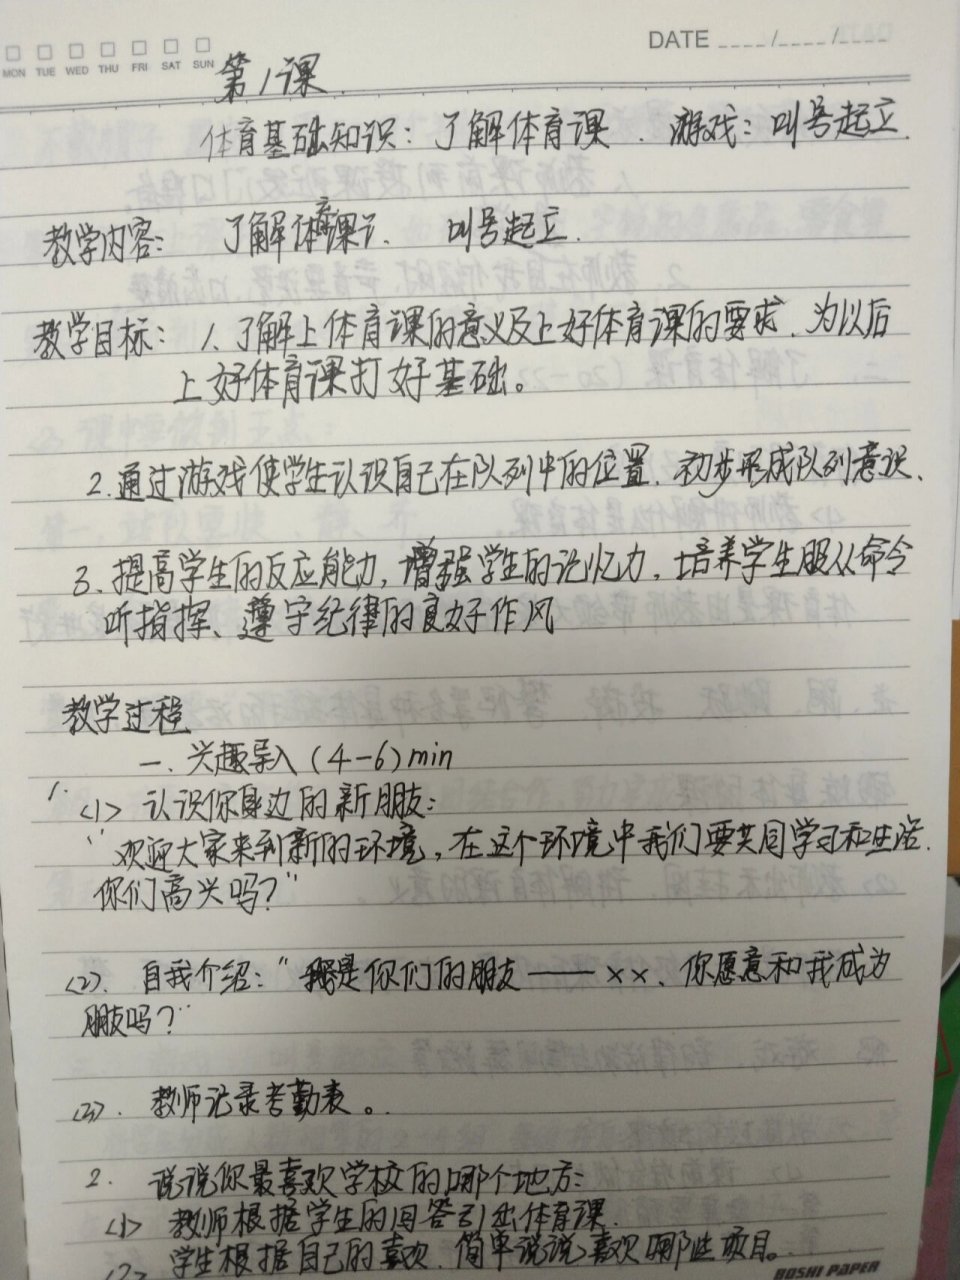 DATE ____/____/____
MON TUE WED THU FRI SAT SUN
第1课
体育基础知识：了解体育课、游戏：叫号起立
教学内容：了解体育课、叫号起立.
教学目标：1、了解上体育课的意义及上好体育课的要求、为以后
上好体育课打好基础。
2.通过游戏使学生认识自己在队列中的位置、初步形成队列意识、
3.提高学生的反应能力，增强学生的记忆力，培养学生服从命令
听指挥、遵守纪律的良好作风
教学过程
一、兴趣导入(4-6)min
1.
<1> 认识你身边的新朋友：
"欢迎大家来到新的环境，在这个环境中我们要共同学习和生活.
你们高兴吗？"
<2>. 自我介绍："我是你们的朋友——××、你愿意和我成为
朋友吗？"
<3>. 教师记录考勤表。
2. 说说你最喜欢学校的哪个地方：
<1> 教师根据学生的回答引出体育课.
<2> 学生根据自己的喜欢、简单说说喜欢哪些项目。
BOSHI PAPER